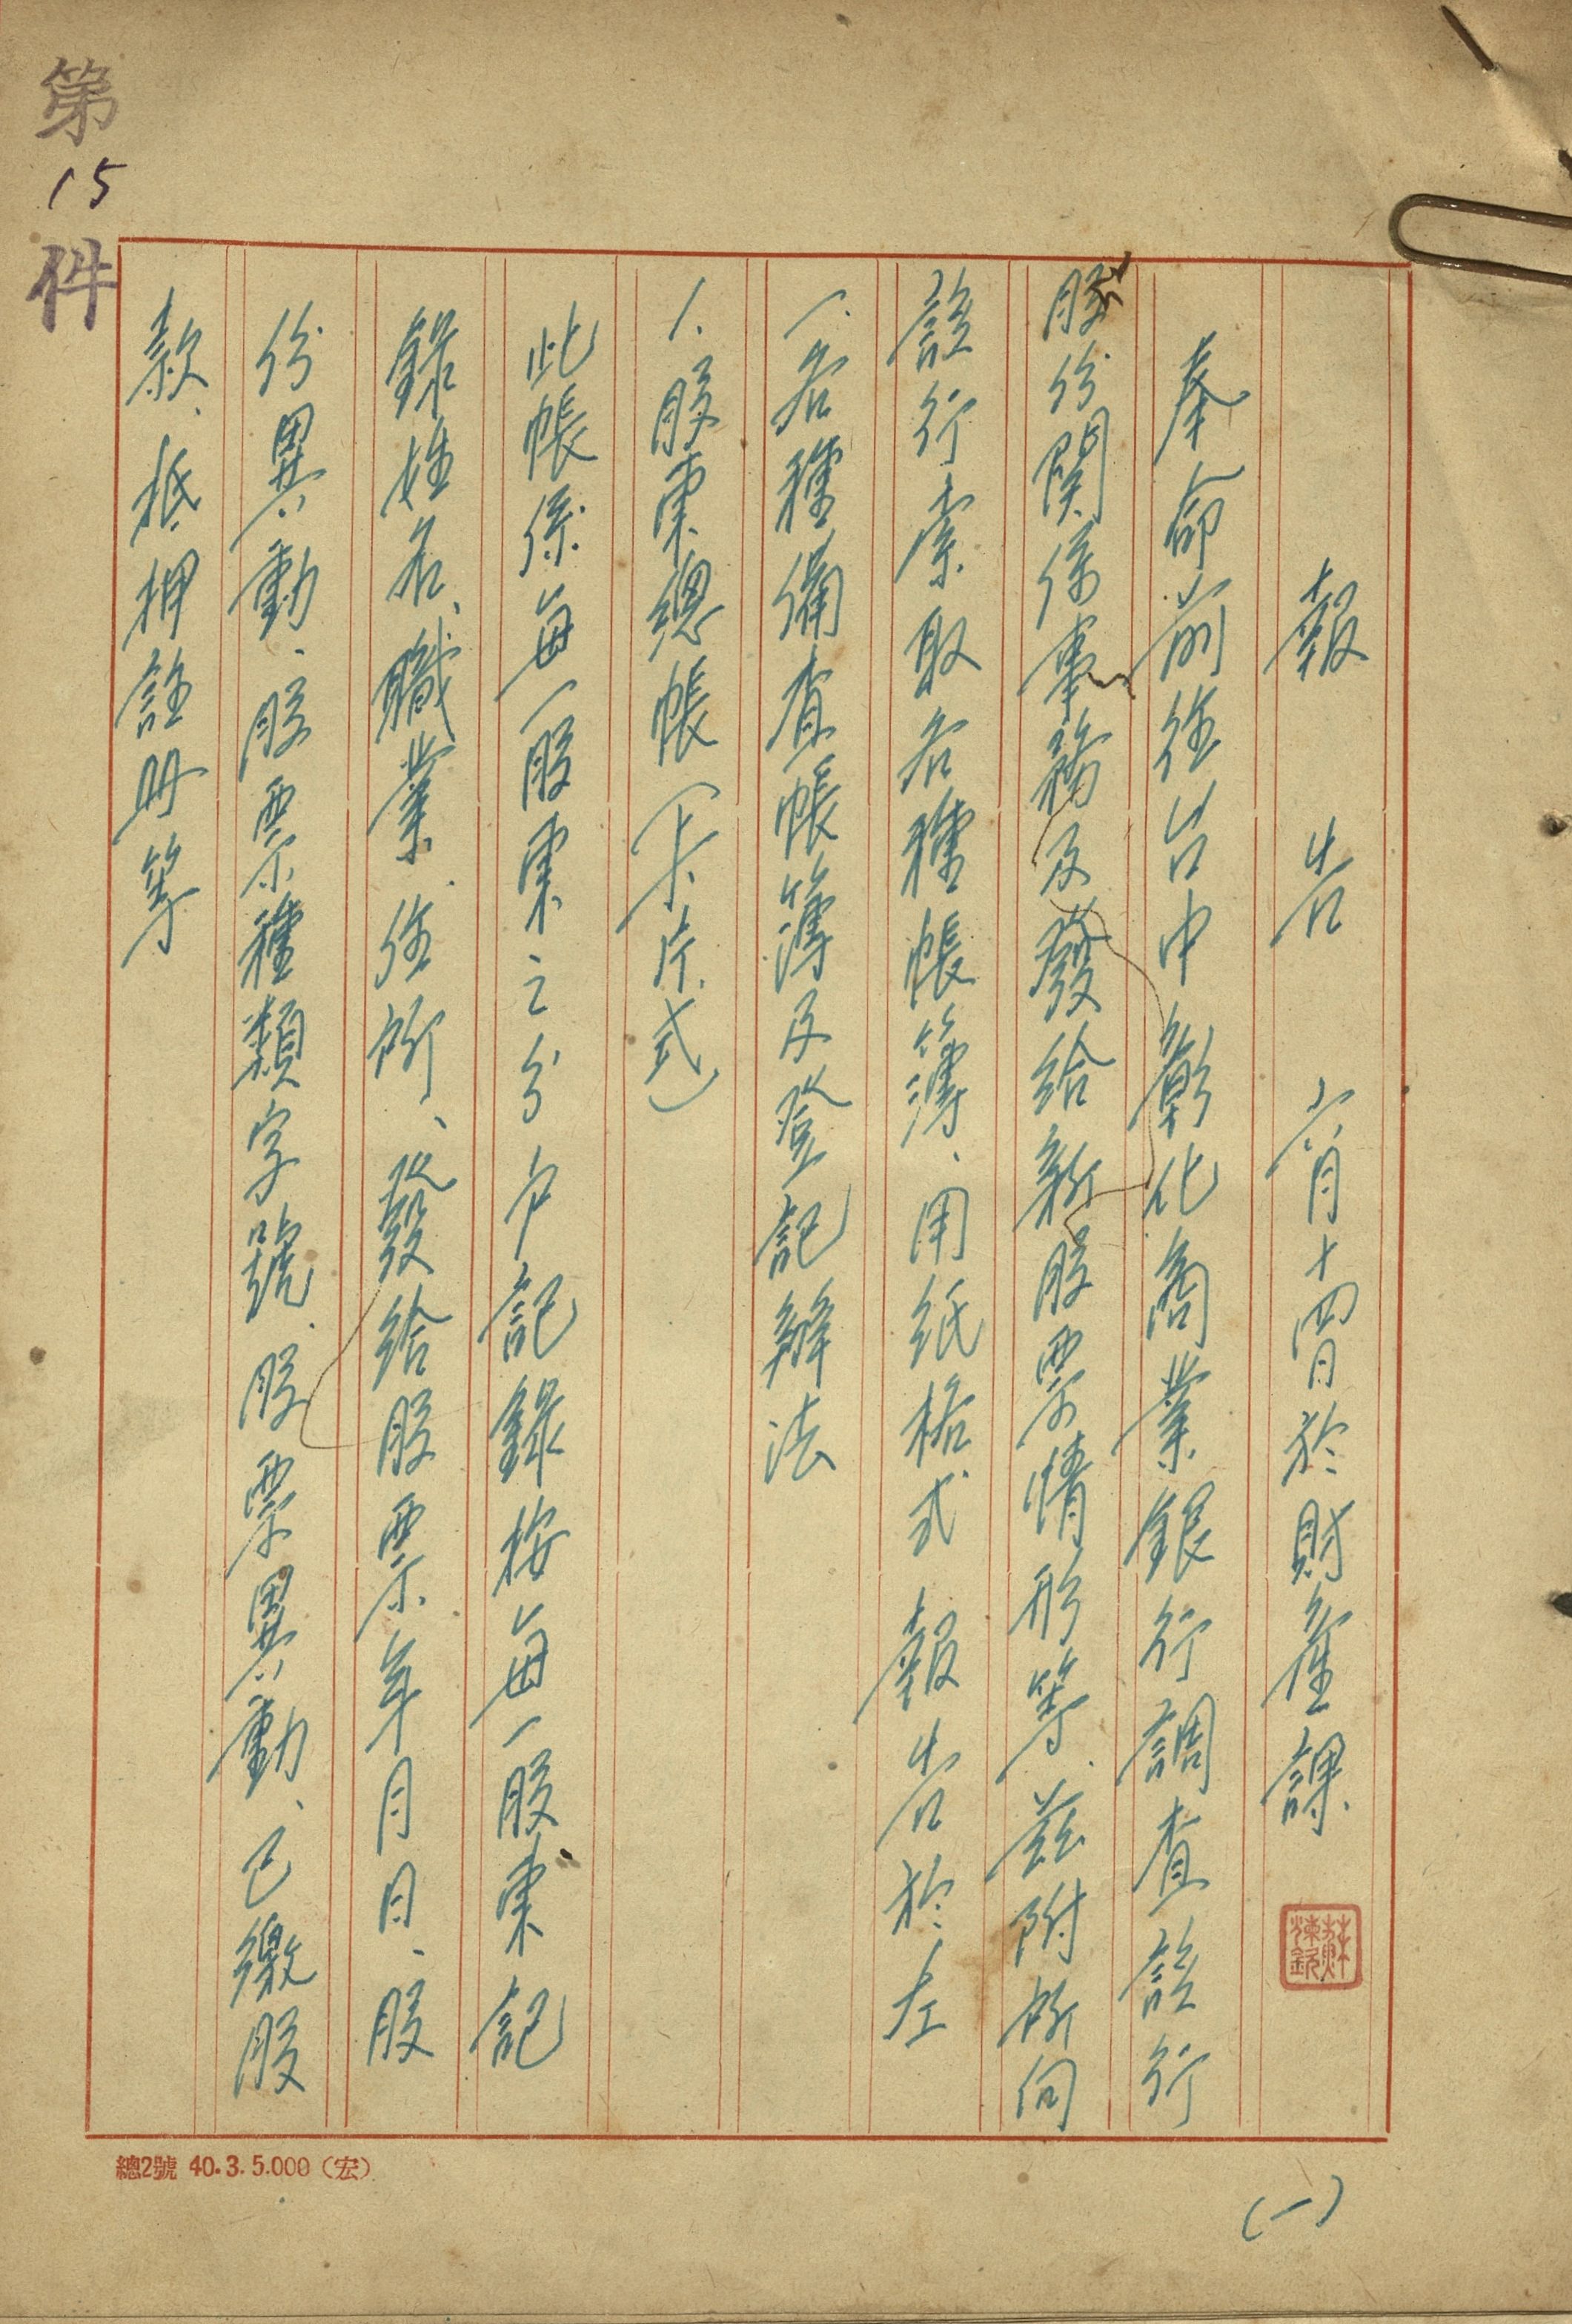 第15件
報告 六月十四日於財產課
奉命前往台中彰化商業銀行調查該行
股份関係事務及發給新股票情形等、茲附所向
該行索取各種帳簿、用紙格式 報告於左
一.各種備查帳簿及登記辦法
1.股東總帳(卡片式)
此帳係每一股東之分户記錄按每一股東記
錄姓名、職業、住所、發給股票年月日、股
份異動、股票種類字號、股票異動、已繳股
款、抵押註册等
總2號 40.3.5.000(宏)
(一)